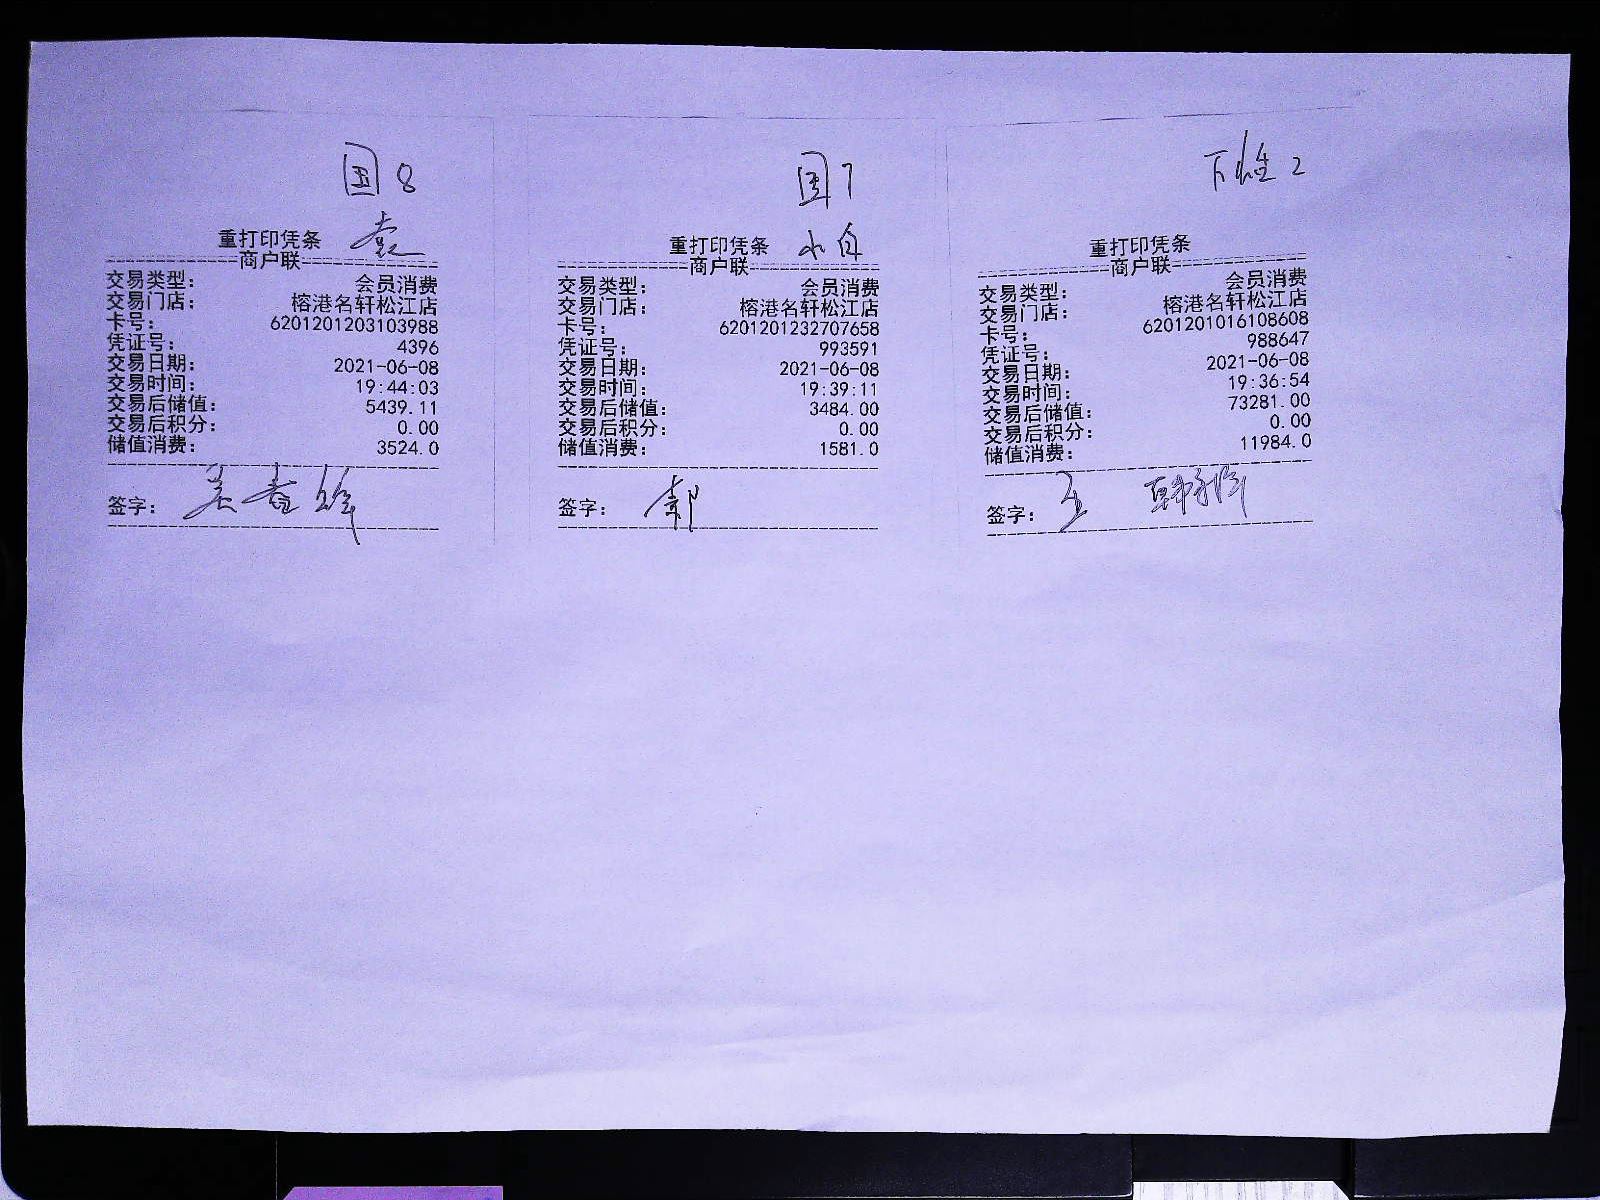 国8
重打印凭条
商户联
交易类型: 会员消费
交易门店: 榕港名轩松江店
卡号: 6201201203103988
凭证号: 4396
交易日期: 2021-06-08
交易时间: 19:44:03
交易后储值: 5439.11
交易后积分: 0.00
储值消费: 3524.0
签字:
国7
重打印凭条
商户联
交易类型: 会员消费
交易门店: 榕港名轩松江店
卡号: 6201201232707658
凭证号: 993591
交易日期: 2021-06-08
交易时间: 19:39:11
交易后储值: 3484.00
交易后积分: 0.00
储值消费: 1581.0
签字: 郭
2
重打印凭条
商户联
交易类型: 会员消费
交易门店: 榕港名轩松江店
卡号: 6201201016108608
凭证号: 988647
交易日期: 2021-06-08
交易时间: 19:36:54
交易后储值: 73281.00
交易后积分: 0.00
储值消费: 11984.0
签字: